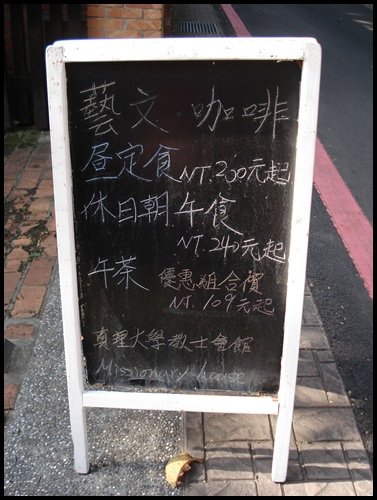 藝文 咖啡
昼定食 NT.200元起
休日朝午食
NT.240元起
午茶 優惠組合價
NT.109元起
真理大學教士會館
Missionary house